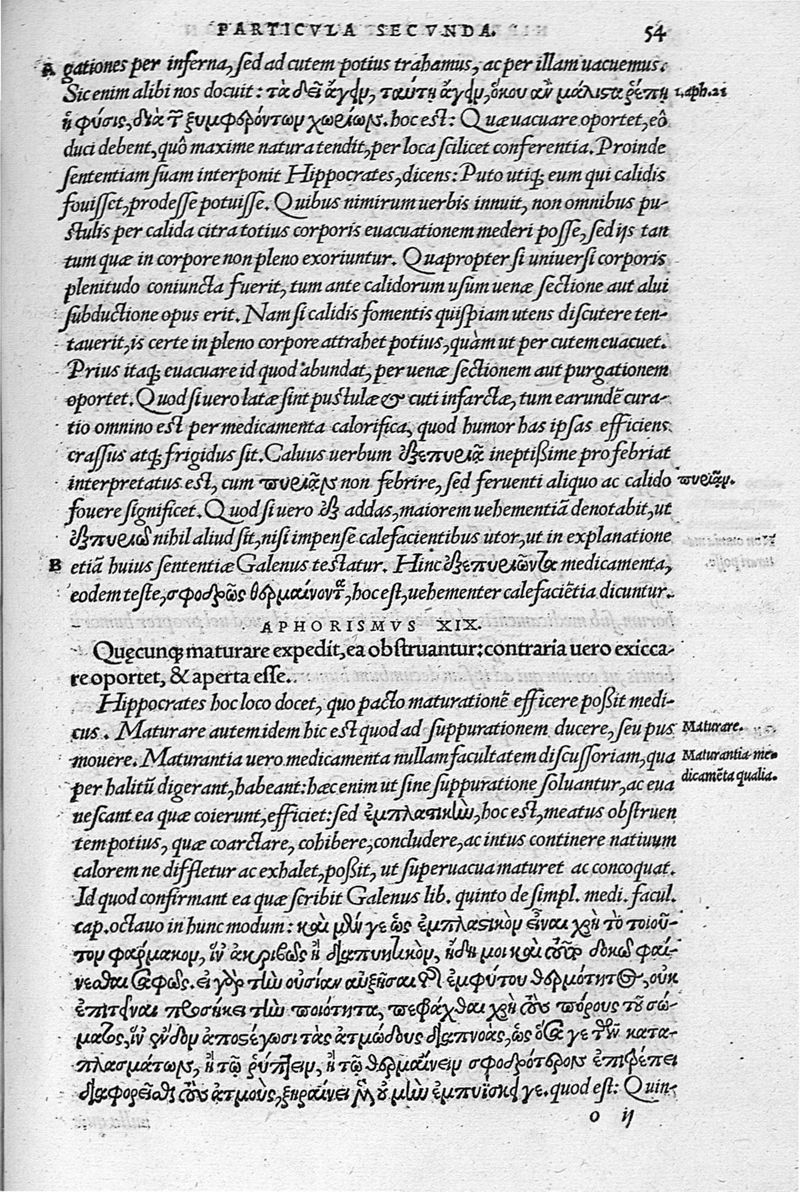 PARTICVLA SECVNDA. 54
A gationes per inferna, sed ad cutem potius trahamus, ac per illam uacuemus.
Sic enim alibi nos docuit: τὰ δεῖ ἄγειν, ταύτῃ ἄγειν, ὅκου ἂν μάλιστα ῥέπῃ 1. aph. 21
ἡ φύσις, διὰ τῶν ξυμφερόντων χωρίων. hoc est: Quæ uacuare oportet, eò
duci debent, quò maxime natura tendit, per loca scilicet conferentia. Proinde
sententiam suam interponit Hippocrates, dicens: Puto utiq; eum qui calidis
fouisset, prodesse potuisse. Quibus nimirum uerbis innuit, non omnibus pu-
stulis per calida citra totius corporis euacuationem mederi posse, sed ijs tan
tum quæ in corpore non pleno exoriuntur. Quapropter si universi corporis
plenitudo coniuncta fuerit, tum ante calidorum usum uenæ sectione aut alui
subductione opus erit. Nam si calidis fomentis quispiam utens discutere ten-
tauerit, is certe in pleno corpore attrahet potius, quàm ut per cutem euacuet.
Prius itaq; euacuare id quod abundat, per uenæ sectionem aut purgationem
oportet. Quod si uero latæ sint pustulæ & cuti infarctæ, tum earundē cura-
tio omnino est per medicamenta calorifica, quod humor has ipsas efficiens
crassus atq; frigidus sit. Caluus uerbum ἐξεπυρία ineptißime pro febriat
interpretatus est, cum πυριᾶν non febrire, sed feruenti aliquo ac calido πυριᾶν.
fouere significet. Quod si uero ἐξ addas, maiorem uehementiā denotabit, ut
ἐξπυριῶ nihil aliud sit, nisi impensè calefacientibus utor, ut in explanatione
B etiā huius sententiæ Galenus testatur. Hinc ἐξεπυριῶντα medicamenta,
eodem teste, σφοδρῶς θερμαίνοντα, hoc est, uehementer calefaciētia dicuntur.
APHORISMVS XIX.
Quęcunq; maturare expedit, ea obstruantur: contraria uero exicca-
re oportet, & aperta esse.
Hippocrates hoc loco docet, quo pacto maturationē efficere poßit medi-
cus. Maturare autem idem hic est quod ad suppurationem ducere, seu pus Maturare.
mouere. Maturantia uero medicamenta nullam facultatem discussoriam, qua Maturantia me-
per halitū digerant, habeant: hæc enim ut sine suppuratione soluantur, ac eua dicamēta qualia.
nescant ea quæ coierunt, efficiet: sed ἐμπλαστικὴν, hoc est, meatus obstruen
tem potius, quæ coarctare, cohibere, concludere, ac intus continere natiuum
calorem ne diffletur ac exhalet, poßit, ut superuacua maturet ac concoquat.
Id quod confirmant ea quæ scribit Galenus lib. quinto de simpl. medi. facul.
cap. octauo in hunc modum: καὶ μὴν γε ὡς ἐμπλαστικὸν εἶναι χρὴ τὸ τοιοῦ-
τον φάρμακον, ἵν' ἀκριβῶς ᾖ διαπυητικὸν, ἤδη μοι καὶ τοῦτο δοκῶ φαί-
νεσθαι σαφῶς. εἰ γὰρ τὴν οὐσίαν αὐξῆσαι τῆς ἐμφύτου θερμότητος, οὐκ
ἐπιτεῖναι προσήκει τὴν ποιότητα, πεφράχθαι χρὴ τοὺς πόρους τοῦ σώ-
ματος, ἵν' ἔνδον ἀποστέγωσι τὰς ἀτμώδους διαπνοάς, ὡς ὅσα γε τῶν κατα-
πλασμάτων, ἢ τῷ ῥύπτειν, ἢ τῷ θερμαίνειν σφοδρότερον ἐπιτρέπει
διαφορεῖσθαι τοὺς ἀτμοὺς, ξηραίνει μᾶλλον οὐ μὴν ἐμπυΐσκει γε. quod est: Quin
o ij